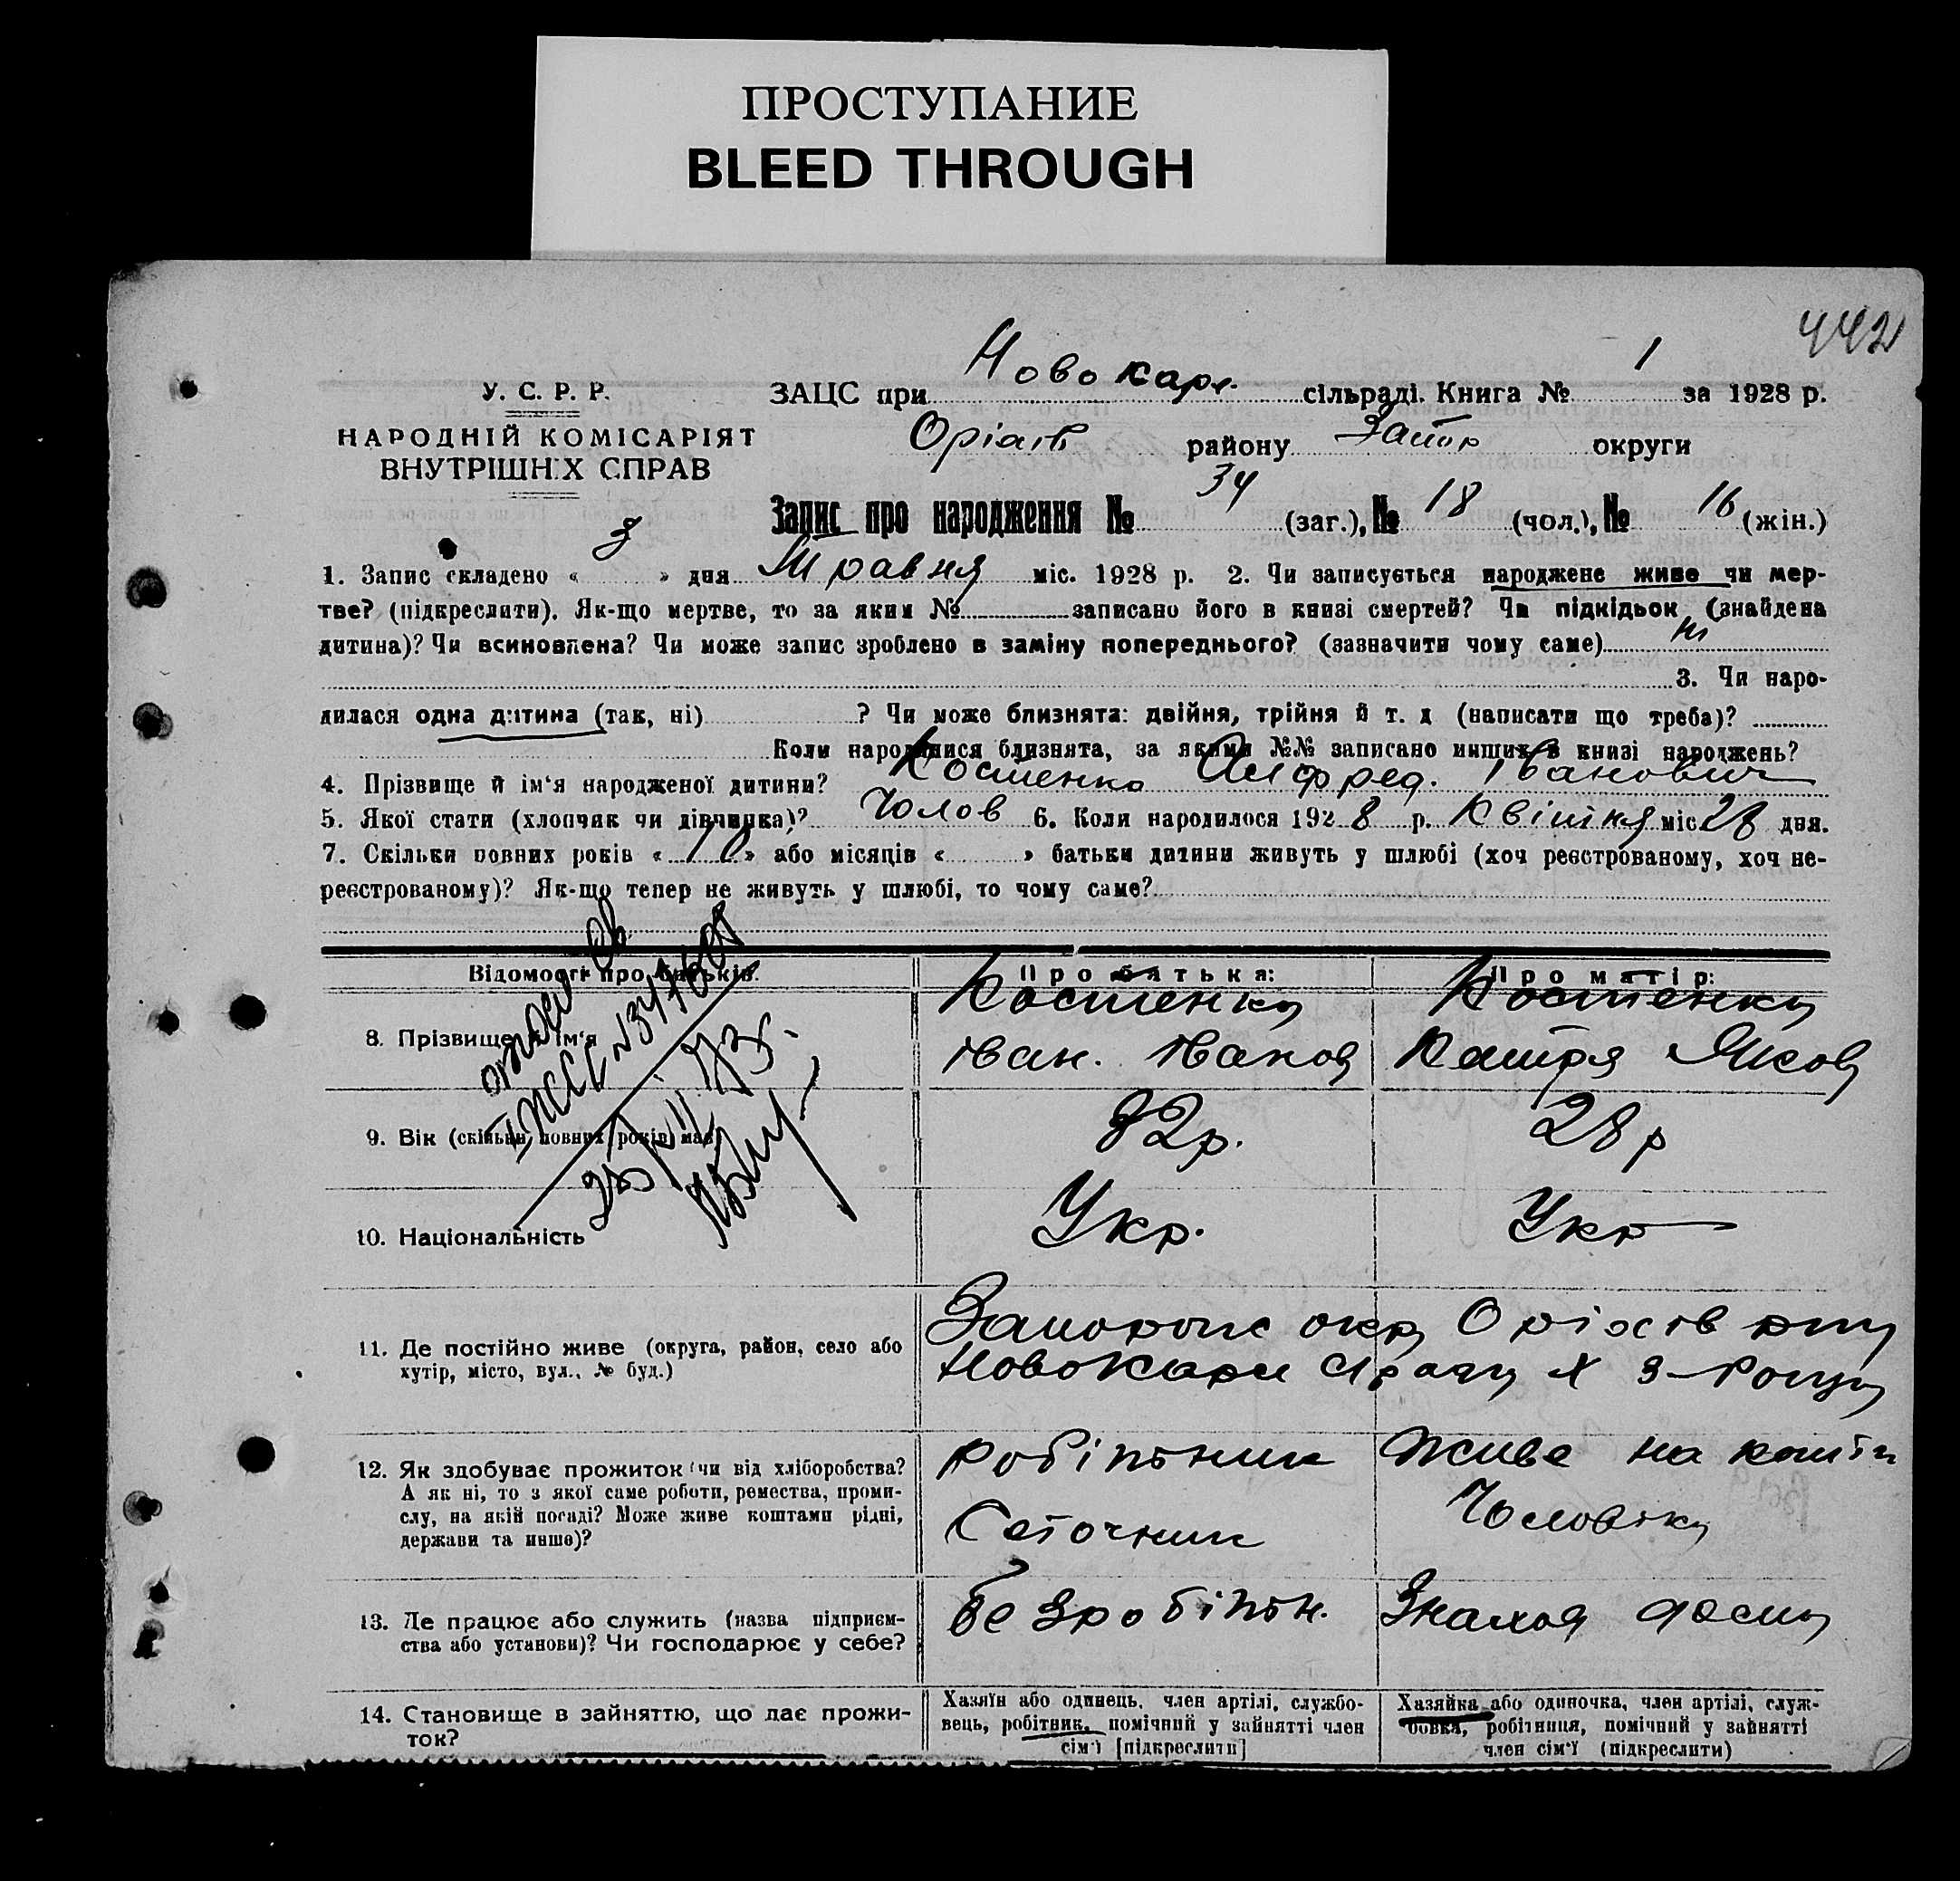 ПРОСТУПАНИЕ
BLEED THROUGH
442
У. С. Р. Р.
НАРОДНІЙ КОМІСАРІЯТ
ВНУТРІШНІХ СПРАВ
ЗАЦС при Новокарл. сільраді. Книга № 1 за 1928 р.
Оріхів району Запор округи
Запис про народження № 34 (заг.), № 18 (чол.), № 16 (жін.)
1. Запис складено « 3 » дня Травня міс. 1928 р. 2. Чи записується народжене живе чи мер-
тве? (підкреслити). Як-що мертве, то за яким № записано його в книзі смертей? Чи підкідьок (знайдена
дитина)? Чи всиновлена? Чи може запис зроблено в заміну попереднього? (зазначити чому саме) ні
3. Чи наро-
дилася одна дитина (так, ні) ? Чи може близнята: двійня, трійня й т. д (написати що треба)?
Коли народилися близнята, за якими №№ записано инших в книзі народжень?
4. Прізвище й ім'я народженої дитини? Костенко Алфред. Іванович
5. Якої стати (хлопчик чи дівчинка)? Чолов 6. Коли народилося 1928 р. Квітня міс 28 дня.
7. Скільки повних років « 10 » або місяців « » батьки дитини живуть у шлюбі (хоч реєстрованому, хоч не-
реєстрованому)? Як-що тепер не живуть у шлюбі, то чому саме?
Відомості про батьків: Про батька: Про матір:
8. Прізвище й ім'я
Костенко
Іван. Іванов
Костенко
Катря Яков
9. Вік (скільки повних років має)
32р.
28р
10. Національність
Укр.
Укр
11. Де постійно живе (округа, район, село або
хутір, місто, вул., № буд.)
Запоріж окр Оріхів рну
Новокарл
12. Як здобуває прожиток чи від хліборобства?
А як ні, то з якої саме роботи, ремества, проми-
слу, на якій посаді? Може живе коштами рідні,
держави та инше)?
робітник
Живе на кошти
Чоловіка
13. Де працює або служить (назва підприєм-
ства або установи)? Чи господарює у себе?
безробітн.
14. Становище в зайняттю, що дає прожи-
ток?
Хазяїн або одинець, член артілі, службо-
вець, робітник, помічний у зайнятті член
сім'ї [підкреслити]
Хазяйка або одиночка, член артілі, служ-
бовка, робітниця, помічний у зайнятті
член сім'ї (підкреслити)